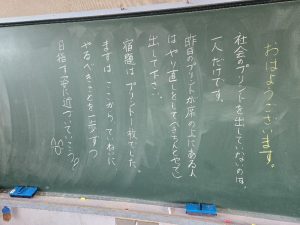 おはようございます。
社会のプリントを出していないのは、
一人だけです。
昨日のプリントが席の上にある人
はやり直しとしてきちんとやって
出して下さい。
宿題はプリント一枚でした。
まずは、ここからていねいに
やるべきことを一歩ずつ
目指す姿に近づいていこう